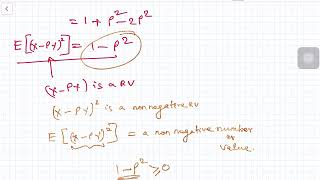 = 1 + ρ² - 2ρ²
E[(X-ρY)²] = 1-ρ²
(X-ρY) is a RV
(X-ρY)² is a non negative RV
E[(X-ρY)²] = a non negative number
or
value.
1-ρ² ≥ 0